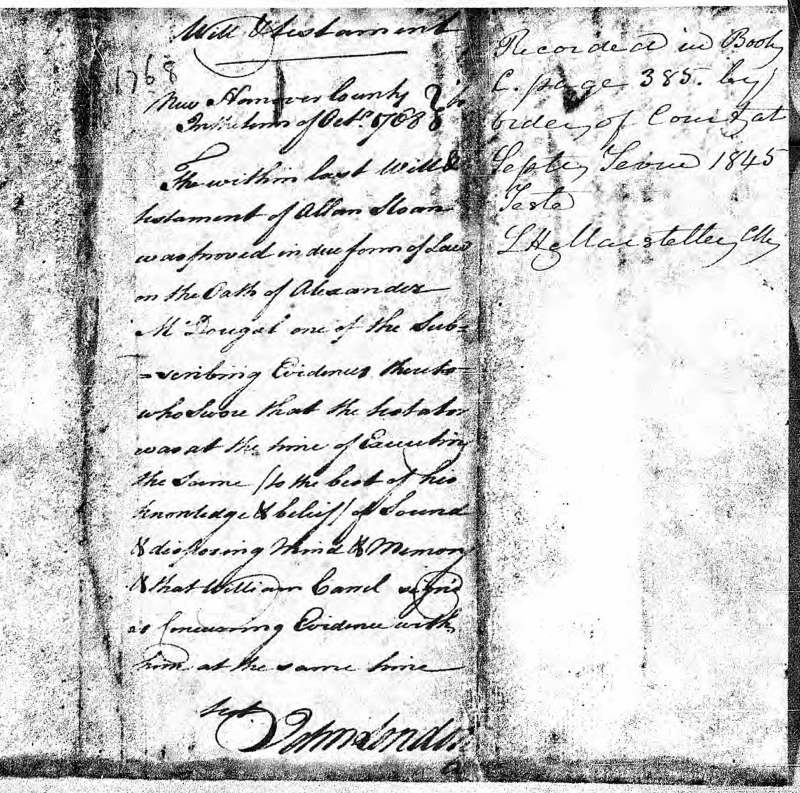 Will & testament
1768
New Hanover County
In the term of Octr. 1768
The within last Will &
testament of Allan Sloan
was proved in due form of Law
on the Oath of Alexander
McDougal one of the Sub=
=scribing Evidences thereto
who Swore that the testator
was at the time of Executing
the Same (to the best of his
knowledge & belief) of Sound
& disposing Mind & Memory
& that William Carrel signd
as Concurring Evidence with
him at the same time
Test.
John London
Recorded in Book
C. page 385. by
order of Court at
Septr Term 1845
Teste
L H Marsteller Clk